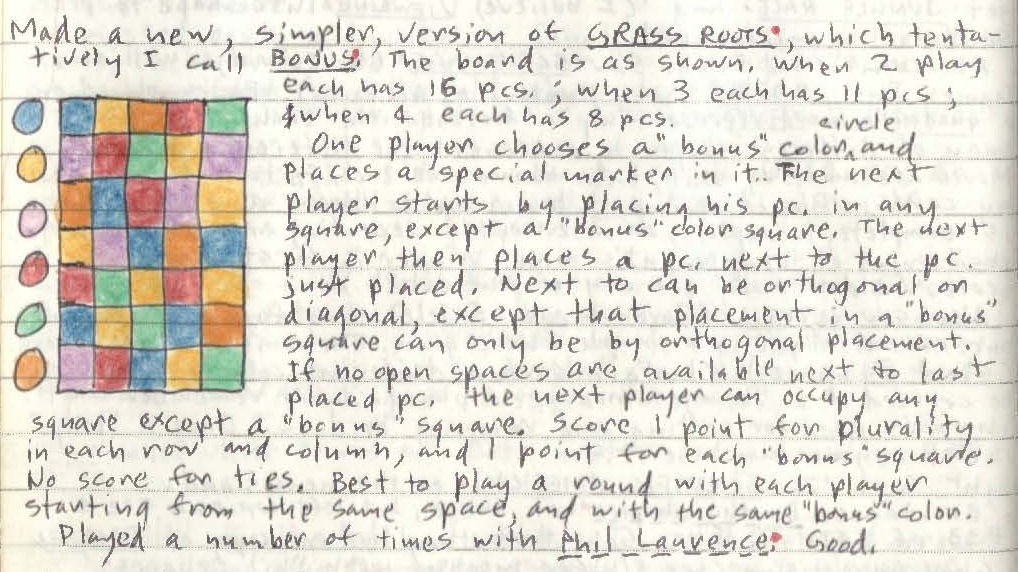 Made a new, simpler, version of GRASS ROOTS, which tenta-
tively I call BONUS. The board is as shown. When 2 play
each has 16 pcs.; when 3 each has 11 pcs;
& when 4 each has 8 pcs.
One player chooses a "bonus" color circle, and
places a special marker in it. The next
player starts by placing his pc. in any
square, except a "bonus" color square. The next
player then places a pc. next to the pc.
just placed. Next to can be orthogonal or
diagonal, except that placement in a "bonus"
square can only be by orthogonal placement.
If no open spaces are available next to last
placed pc. the next player can occupy any
square except a "bonus" square. Score 1 point for plurality
in each row and column, and 1 point for each "bonus" square.
No score for ties. Best to play a round with each player
starting from the same space, and with the same "bonus" color.
Played a number of times with Phil Laurence. Good.